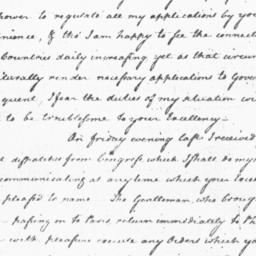 power to regulate all my applications by you
nience, & tho I am happy to see the connect
Countries daily increasing yet as that circum
iturally render necessary applications to Gover
quent, I fear the duties of my situation wi
to be troublesome to your Excellency.
On friday evening last I received
dispatches from Congress which I shall do mys
communicating at any time which your Excel
pleased to name. The Gentleman who broug
passing on to Paris return immediately to Ph
with pleasure execute any Orders which yo